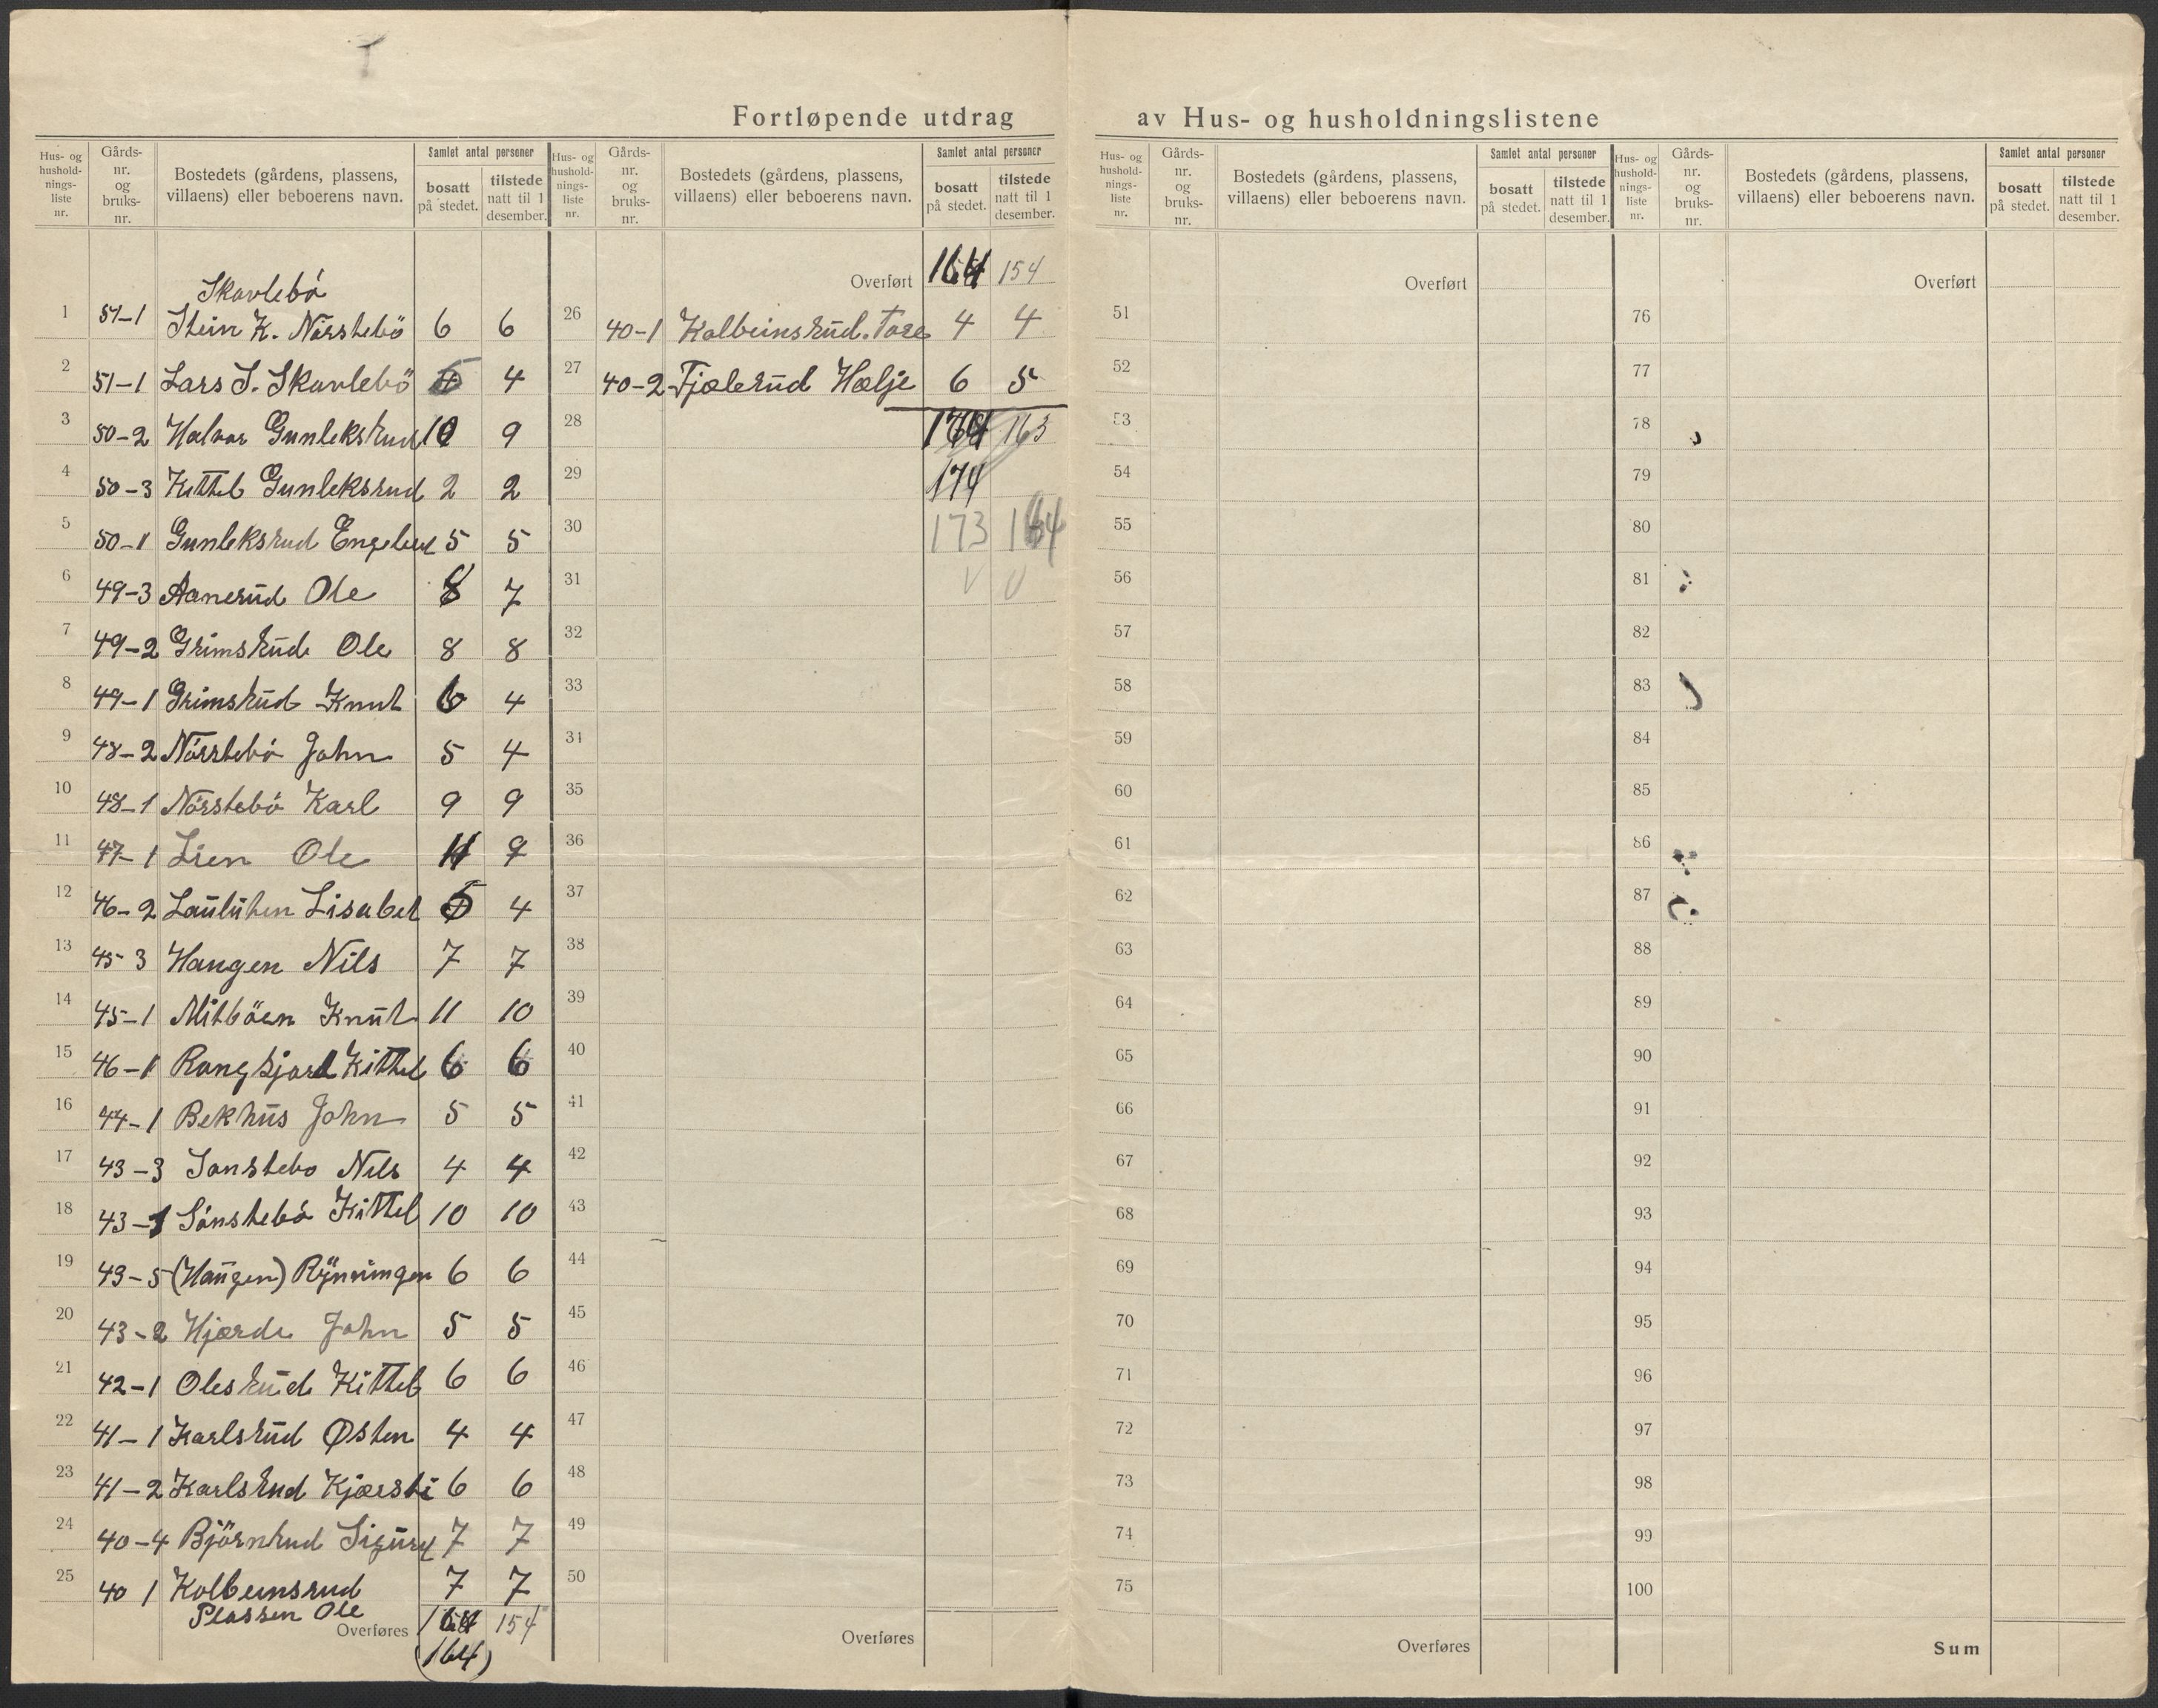 Fortløpende utdrag av Hus- og husholdningslistene
Hus- og husholdningsliste nr. | Gårds-nr. og bruks-nr. | Bostedets (gårdens, plassens, villaens) eller beboerens navn. | Samlet antal personer | bosatt på stedet. | tilstede natt til 1 desember.
Hus- og husholdningsliste nr. | Gårds-nr. og bruks-nr. | Bostedets (gårdens, plassens, villaens) eller beboerens navn. | Samlet antal personer | bosatt på stedet. | tilstede natt til 1 desember.
Skavlebö
1 51-1 Stein K. Nörstebö 6 6
2 51-1 Lars S. Skavlebö 5 4
3 50-2 Halvor Gunleksrud 10 9
4 50-3 Kittel Gunleksrud 2 2
5 50-1 Gunleksrud 5 5
6 49-3 Aanerud Ole 8 7
7 49-2 Grimsrud Ole 8 8
8 49-1 Grimsrud Knut 6 4
9 48-2 Nörstebö John 5 4
10 48-1 Nörstebö Karl 9 9
11 47-1 Lien Ole 11 9
12 46-2 Lisabet 5 4
13 45-3 Haugen Nils 7 7
14 45-1 Mitböen Knut 11 10
15 46-1 Kittel 6 6
16 44-1 Bekhus John 5 5
17 43-3 Sonstebo Nils 4 4
18 43-1 Sönstebö Kittel 10 10
19 43-5 (Haugen) Rynningen 6 6
20 43-2 Hjærde John 5 5
21 42-1 Olesrud Kittel 6 6
22 41-1 Karlsrud Østen 4 4
23 41-2 Karlsrud Kjærsti 6 6
24 40-4 Björnrud Sigurd 7 7
25 40 1 Kolbeinsrud 7 7
Plassen Ole
Overføres 164 154
(164)
Overført 164 154
26 40-1 Kolbeinsrud. Tore 4 4
27 40-2 Fjælerud Hælje 6 5
28 174 163
29 174
30 173 164
31
32
33
34
35
36
37
38
39
40
41
42
43
44
45
46
47
48
49
50
Overføres
Hus- og husholdningsliste nr. | Gårds-nr. og bruks-nr. | Bostedets (gårdens, plassens, villaens) eller beboerens navn. | Samlet antal personer | bosatt på stedet. | tilstede natt til 1 desember.
Overført
51
52
53
54
55
56
57
58
59
60
61
62
63
64
65
66
67
68
69
70
71
72
73
74
75
Overføres
Hus- og husholdningsliste nr. | Gårds-nr. og bruks-nr. | Bostedets (gårdens, plassens, villaens) eller beboerens navn. | Samlet antal personer | bosatt på stedet. | tilstede natt til 1 desember.
Overført
76
77
78
79
80
81
82
83
84
85
86
87
88
89
90
91
92
93
94
95
96
97
98
99
100
Sum